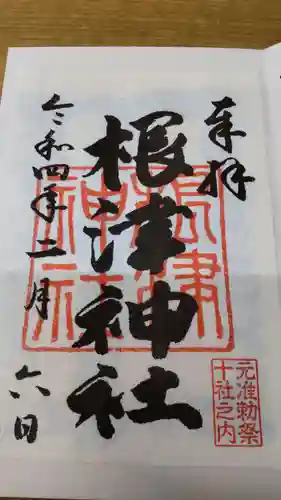 奉拝
根津神社
令和四年二月六日
根津神社
元准勅祭
十社之内